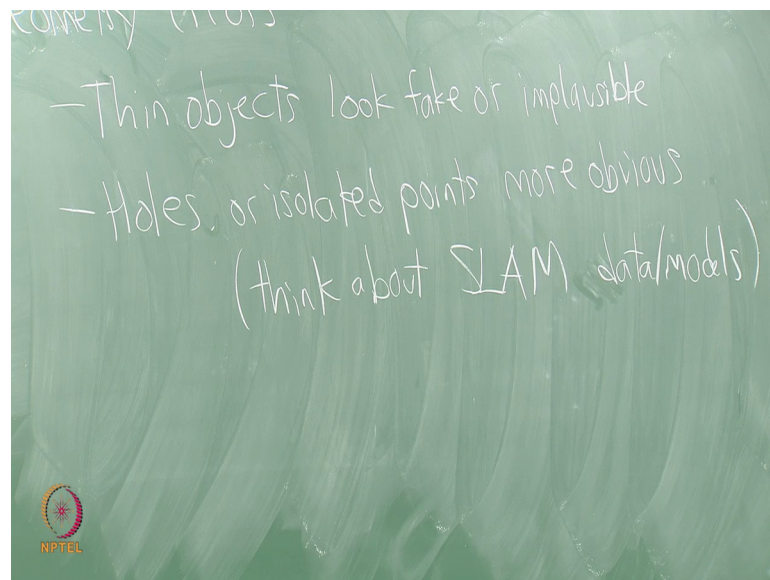 - Thin objects look fake or implausible
- Holes, or isolated points more obvious
(think about SLAM data/models)
NPTEL